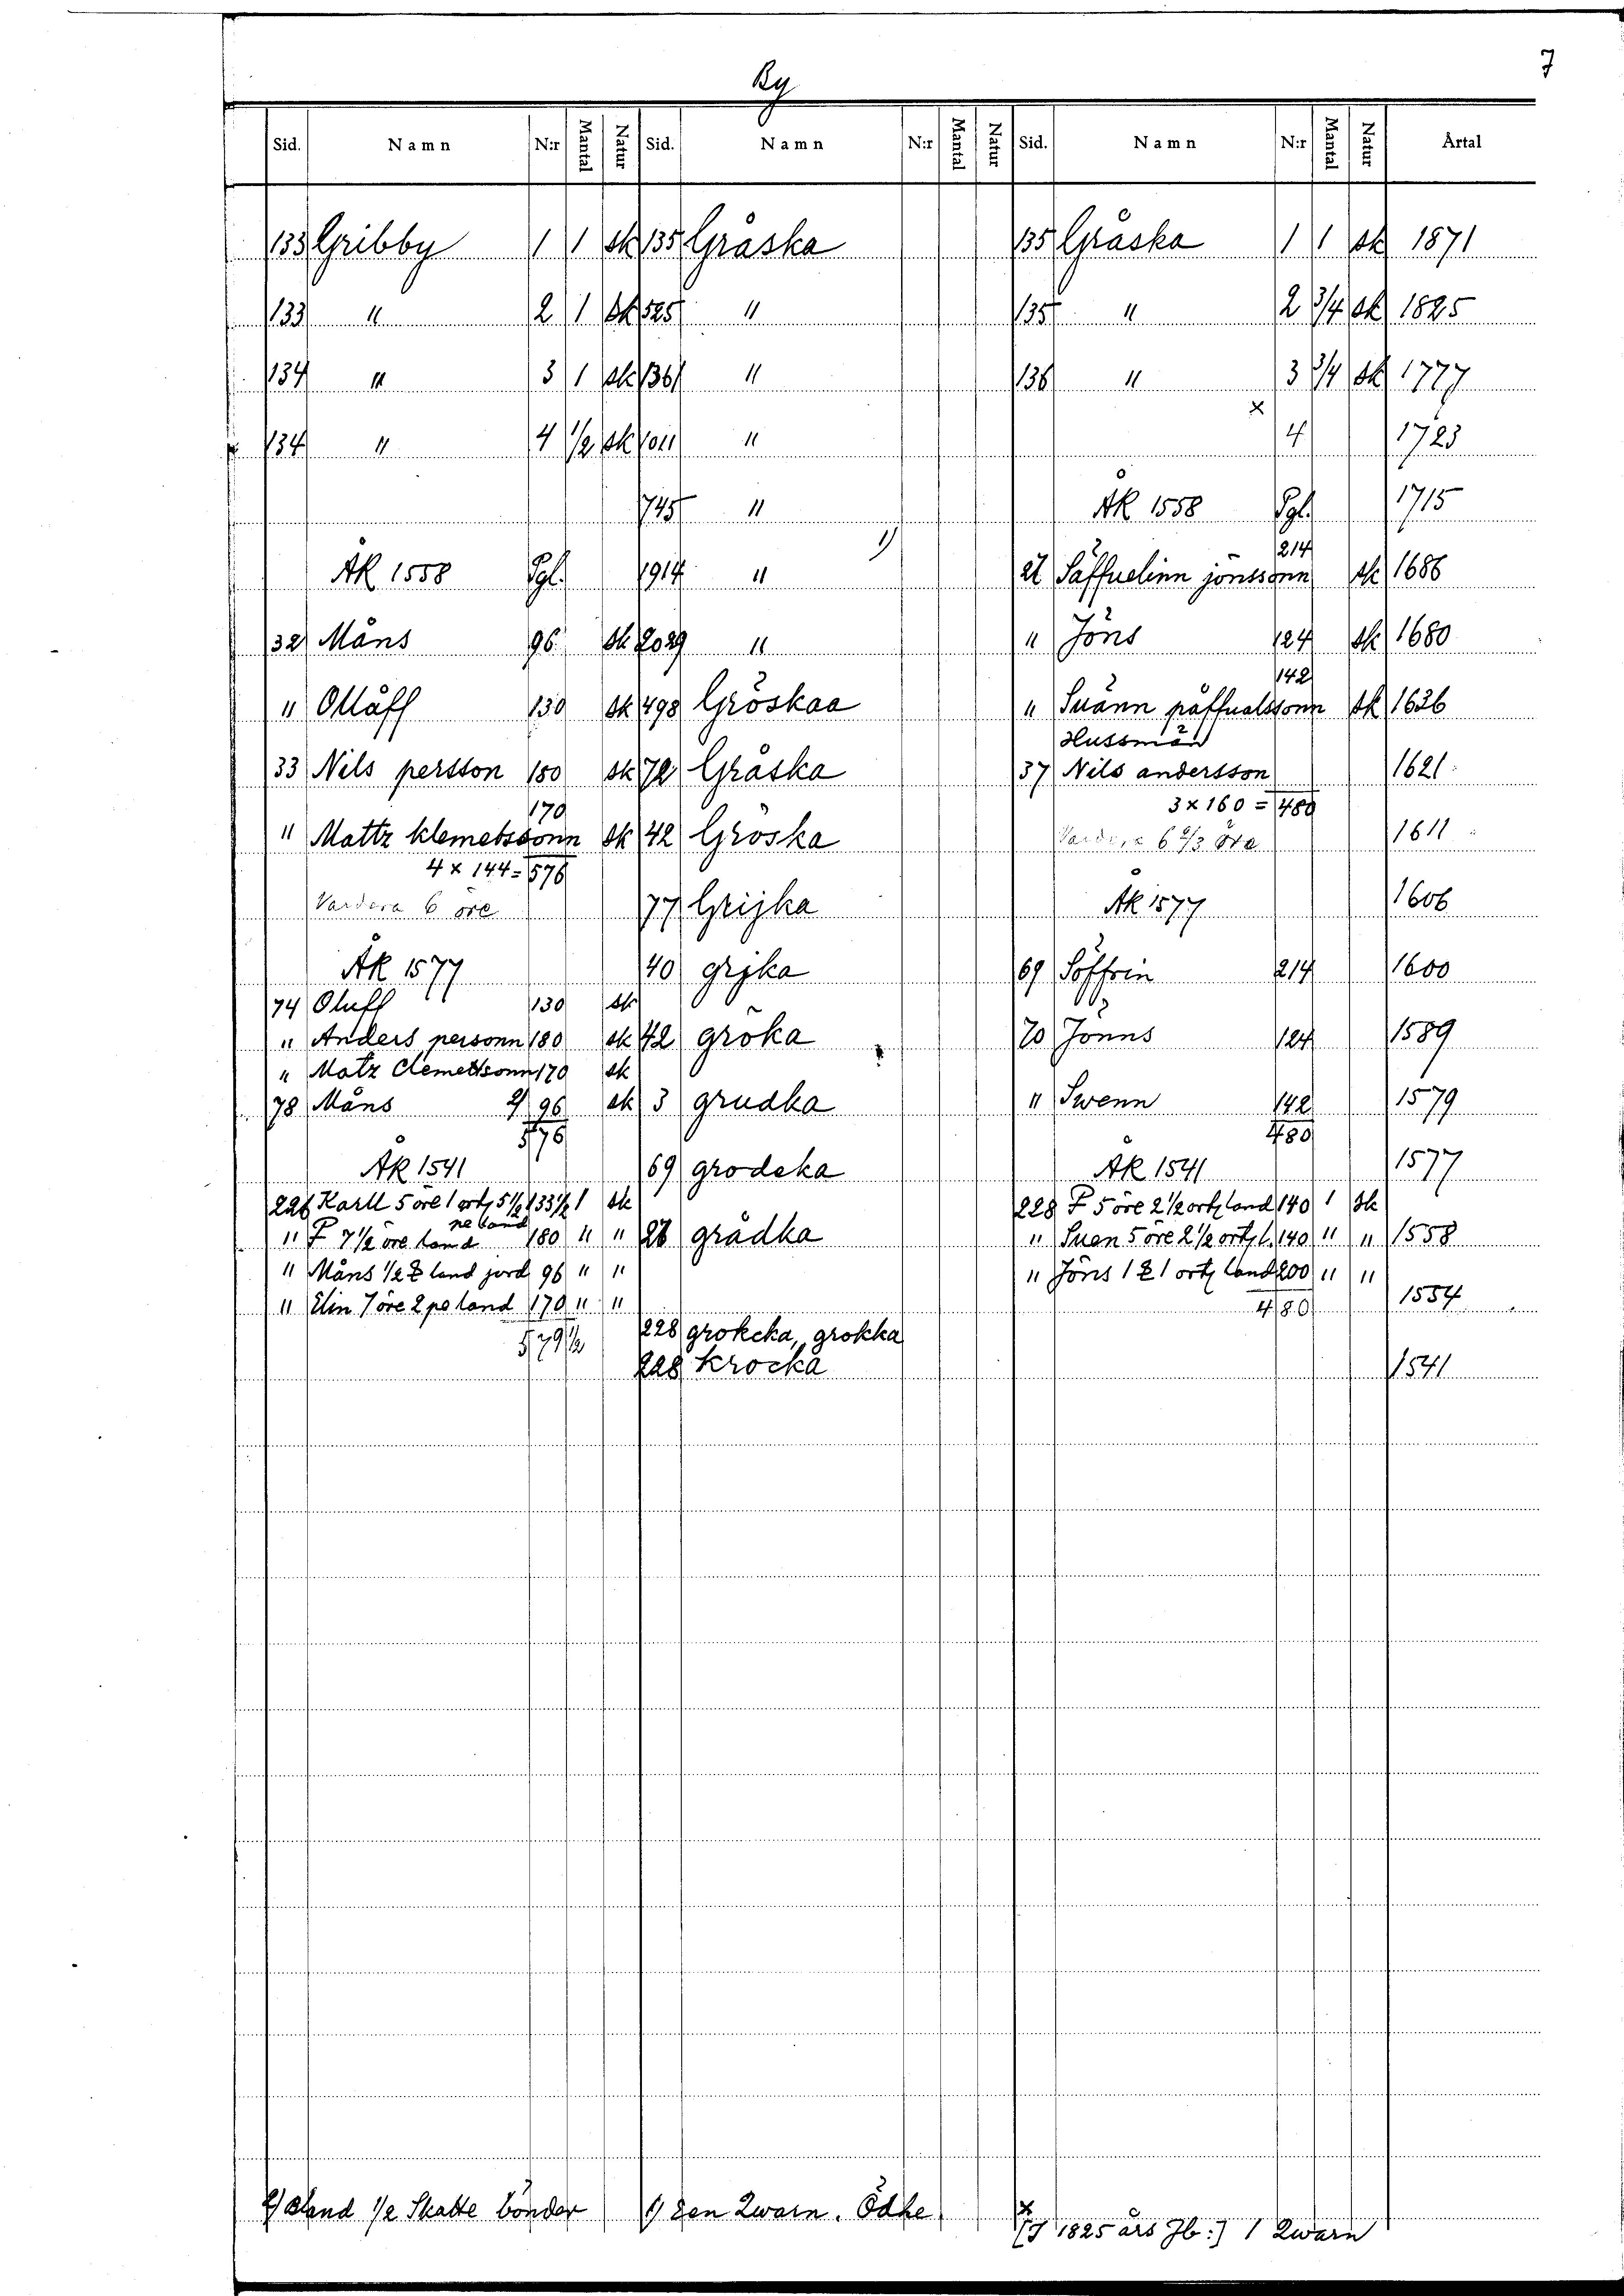 7
Ry
Sid. Namn N:r Mantal Natur Sid. Namn N:r Mantal Natur Sid. Namn N:r Mantal Natur Årtal
133 Gribby 1 1 sk 135 Gråska 135 Gråska 1 1 sk 1871
133 " 2 1 sk 525 " 135 " 2 3/4 sk 1825
134 " 3 1 sk 136 " 136 " 3 3/4 sk 1777
134 " 4 1/2 sk 1011 " x 4 1723
745 " ÅK 1558 Pgl. 1715
ÅK 1558 Pgl. 1914 " 1) 21 Säffuelinn jonssonn 214 sk 1686
32 Måns 96 sk 2029 " " Jöns 124 sk 1680
" Olläff 130 sk 498 Gröskaa " Suänn påffualssonn 142 sk 1636
33 Nils persson 180 sk 72 Gråska Hussmän 37 Nils andersson 1621
" Mattz klemetssonn 170 sk 42 Gröska 3 x 160 = 480 Vardera 6 2/3 öre 1611
4 x 144 = 576
Vardera 6 öre 77 Grijka ÅK 1577 1606
ÅK 1577 40 grjka 69 Söffrin 214 1600
74 Oluff 130 sk
" Anders personn 180 sk 42 gröka 70 Jönns 124 1589
" Matz Clemettsonn 170 sk
78 Måns 2) 96 sk 3 grudka " Swenn 142 1579
576 480
ÅK 1541 69 grodeka ÅK 1541 1577
226 Karll 5 öre 1 ort 5 1/2 133 1/2 1 sk 228 F 5 öre 2 1/2 ort land 140 1 sk
pe land
" F 7 1/2 öre land 180 " " 26 grådka " Suen 5 öre 2 1/2 ort l. 140 " " 1558
" Måns 1/2 land jord 96 " " " Jöns 1 1 ort land 200 " "
" Elin 7 öre 2 pe land 170 " " 480 1554
579 1/2 228 grokcka, grokka
228 krocka 1541
2) Bland 1/2 Skatte bönder 1) Een Qwarn. Ödhe x [I 1825 års Jb:] 1 Qwarn